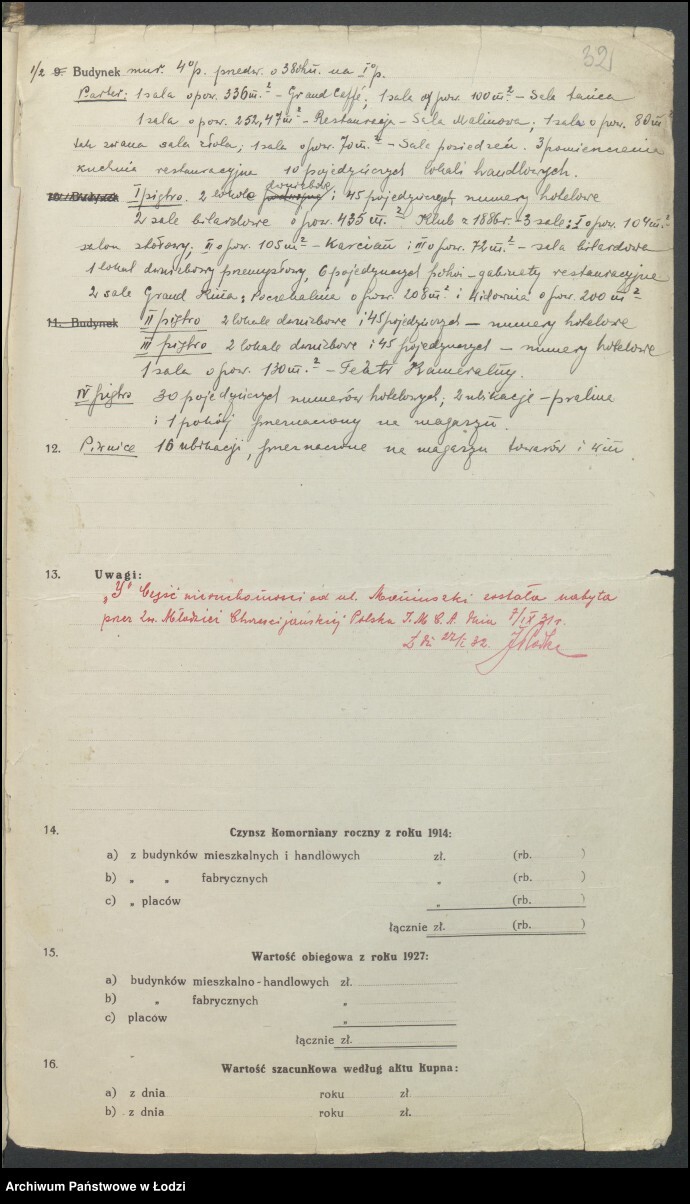 32
1/2 9. Budynek mur. 4º/p. przedw. o 38 okn. na Iº/p.
Parter: 1 sala o pow. 336 m.² – Grand Caffé; 1 sala o pow. 100 m² – Sala tańca
1 sala o pow. 252,47 m² – Restauracja – Sala Malinowa; 1 sala o pow. 80 m²
tak zwana sala złota; 1 sala o pow. 70 m² – Sala posiedzeń. 3 pomieszczenia
kuchnia restauracyjna 10 pojedyńczych lokali handlowych.
10. Budynek I piętro. 2 lokale dwuizbowe i 45 pojedyńczych numery hotelowe
2 sale bilardowe o pow. 435 m.² Klub z 1886 r. – 3 sale: I o pow. 104 m.²
salon stołowy, II o pow. 105 m² – Karciań i III o pow. 72 m.² – sala bilardowa
1 lokal dwuizbowy przemysłowy, 6 pojedynczych pokoi – gabinety restauracyjne
2 sale Grand Kina: Poczekalnia o pow. 208 m² i Widownia o pow. 200 m²
11. Budynek II piętro 2 lokale dwuizbowe i 45 pojedyńczych – numery hotelowe
III piętro 2 lokale dwuizbowe i 45 pojedynczych – numery hotelowe
1 sala o pow. 130 m.² – Teatr Kameralny.
IV piętro 30 pojedyńczych numerów hotelowych; 2 ubikacje – pralnie
i 1 pokój przeznaczony na magazyn.
12. Piwnice 16 ubikacji, przeznaczone na magazyn towarów i win
13. Uwagi:
Część nieruchomości od ul. Moniuszki została nabyta
przez Zw. Młodzieży Chrześcijańskiej Polska I.M.C.A. dnia 7/IX 31 r.
Ł dn 22/I 32.
14. Czynsz komorniany roczny z roku 1914:
a) z budynków mieszkalnych i handlowych zł. (rb. )
b) „ „ fabrycznych „ (rb. )
c) „ placów „ (rb. )
łącznie zł. (rb. )
15. Wartość obiegowa z roku 1927:
a) budynków mieszkalno-handlowych zł.
b) „ fabrycznych „
c) placów „
łącznie zł.
16. Wartość szacunkowa według aktu kupna:
a) z dnia roku zł
b) z dnia roku zł.
Archiwum Państwowe w Łodzi